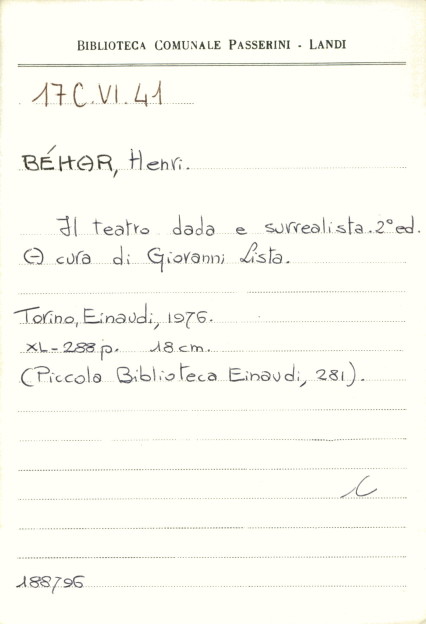 BIBLIOTECA COMUNALE PASSERINI - LANDI
17C.VI.41
BÉHAR, Henri.
Il teatro dada e surrealista. 2° ed.
A cura di Giovanni Lista.
Torino, Einaudi, 1976.
XL-288 p. 18 cm.
(Piccola Biblioteca Einaudi, 281).
188796